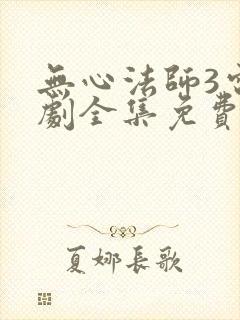 無心法師3
劇全集免費
夏娜長歌